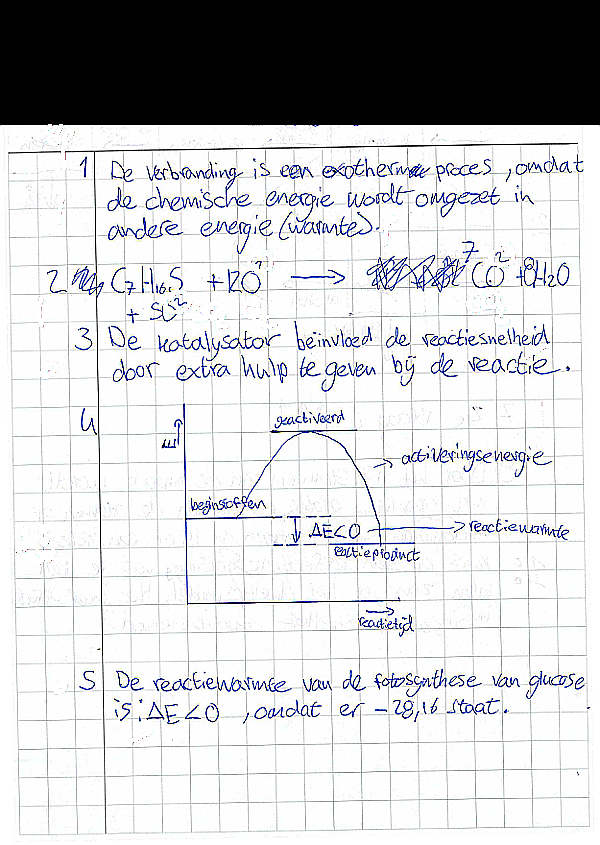 1 De verbranding is een exotherme proces, omdat
de chemische energie wordt omgezet in
andere energie (warmte).
2 C7H16S + 12O2 → 7CO2 + 8H2O
+ SO2
3 De katalysator beinvloed de reactiesnelheid
door extra hulp te geven bij de reactie.
4
geactiveerd
E →
→ activeringsenergie
beginstoffen
↓ ΔE<0 → reactiewarmte
reactieproduct
→
reactietijd
5 De reactiewarmte van de fotosynthese van glucose
is: ΔE<0, omdat er -28,16 staat.